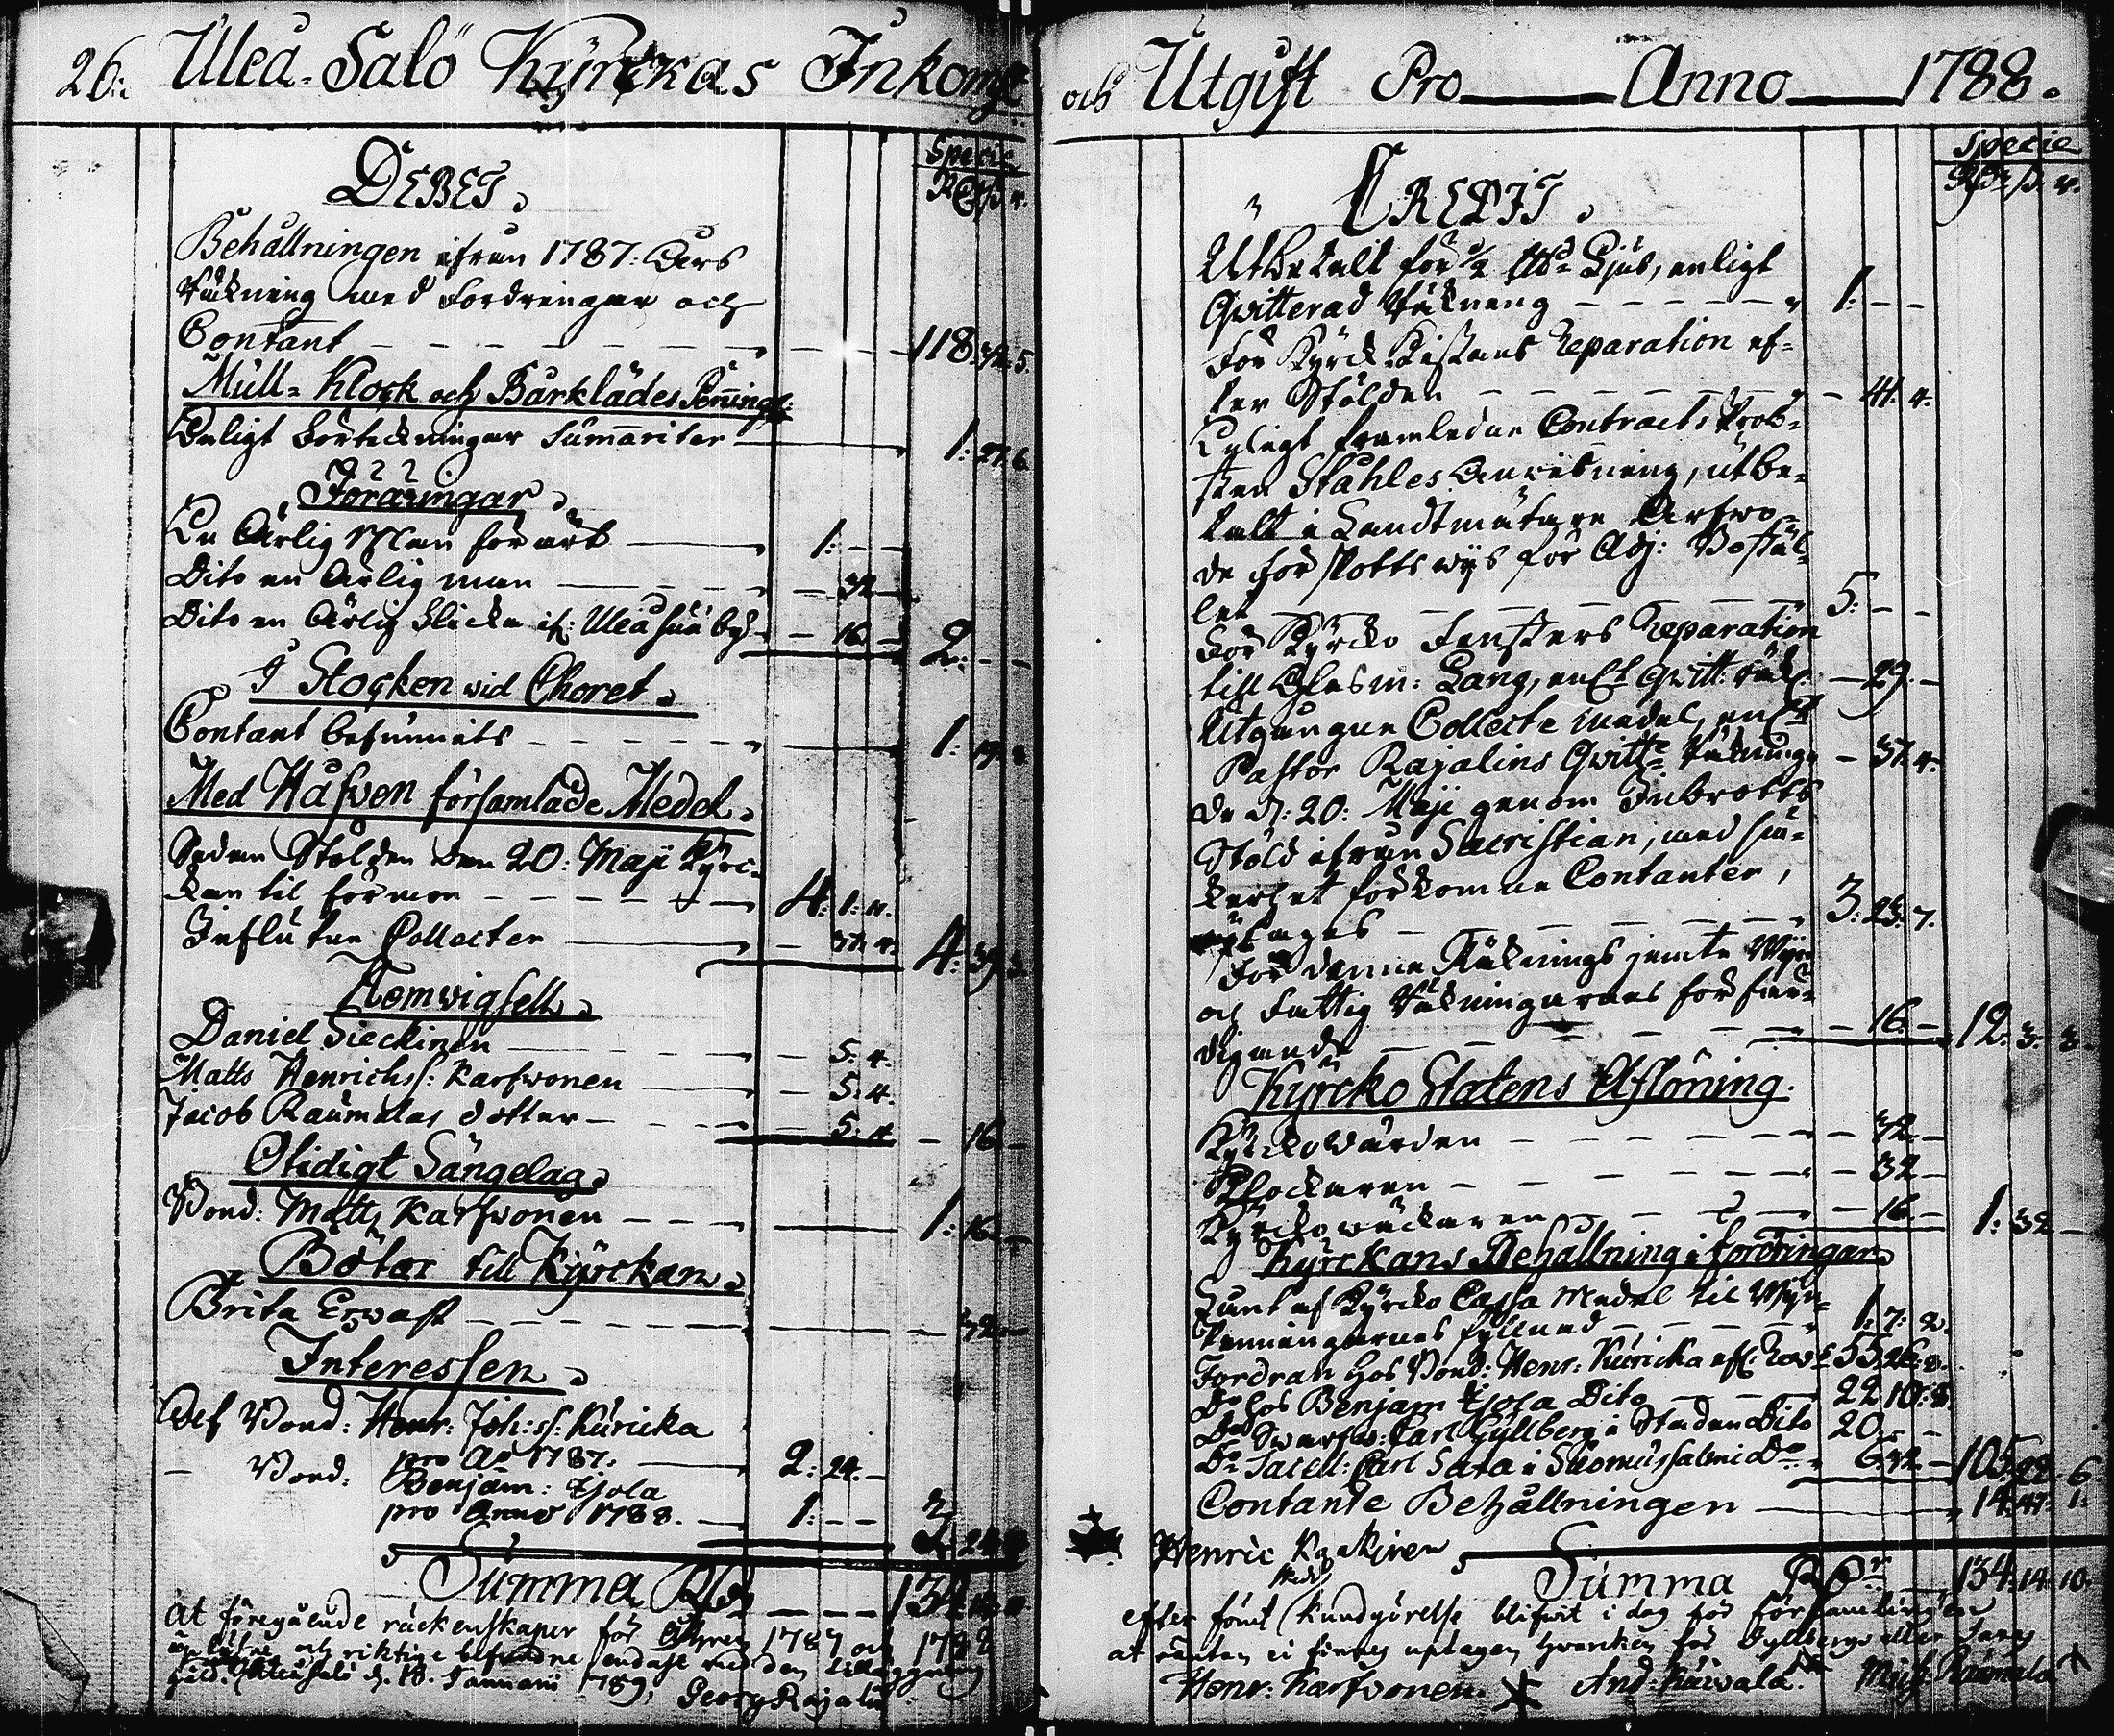 26: Uleå-Salo Kyrckas Inkomst
DEBET.
Specie
Rdr ß r.
Behållningen ifrån 1787: Åhrs
Räkning med Fordringar och
Contant — 118. 32. 5.
Mull- Klock och Bårklädes Penningr:
Enligt Förteckningar Summariter — 1: 27. 6.
Föräringar.
En Ärlig Man förärt — 1: — —
Dito en Ärlig man — 32 —
Dito en Ärlig Flicka if: Uleå by — 16. — 2. — —
I Stocken wid Choret.
Contant befunnits — 1: 19.
Med Håfven församlade Medel.
Sedan Stölden den 20: Maji Kyrc-
kan til förmon — 4: 1: 11.
Influtne Collecter — 37. 4. 4: 39. 3.
Hemvigsell.
Daniel Sieckinen — 5: 4.
Matts Henrichss: Karfvonen — 5: 4.
Jacob Raumalas dotter — 5: 4. — 16 —
Otidigt Sängelag.
Bond: Matts Karfvonen — 1: 16 —
Böter till Kyrckan.
Brita Erwast — 32 —
Interessen.
Af Bond: Henr: Joh:ss: Kuricka
pro Ao 1787. — 2: 24. —
— Bond: Benjam: Tjola
pro Anno 1788. — 1: — — 3. 24.
Summa Rdr — 134 14. 10
At föregående räckenskaper för Åhren 1787 och 1788
och riktige befundne endast med den tilläggning
Uleåsalo d. 18. Januarii 1789,
Georg Rajalin
och Utgift Pro Anno 1788.
CREDIT.
Specie
Rdr ß r.
Utbetalt för 1/2 Ljus, enligt
Qvitterad Räkning — 1: — —
För Kyrck Kistans Reparation ef-
ter Stölden — 44. 4.
Enligt framledne Contracts Prob-
sten Ståhles Anvisning, utbe-
talt i Landtmätare Arfwo-
de förskotts wijs för Adj: Bostäl-
let — 5: — —
För Kyrcko Fensters Reparation
till Glasm: Lang, enl:t qvitt: räkn: — 29. —
Utgångne Collecte medel, enl:t
Pastor Rajalins Qvitt: Räkning — 37. 4.
De d: 20: Maji genom Inbrotts
Stöld ifrån Sacristian, med sä-
kerhet förkomne Contanter,
— 3: 23. 7.
För denne Räknings jemte Wijn
och Fattig Räkningarnes förfär-
digande — 16. — 12. 3. 3.
Kyrcko Statens Aflöning.
Kyrckowärden — 32. —
Klockaren — 32 —
Kyrckowäcktaren — 16. — 1: 32 —
Kyrckans Behållning i fordringar
Lånt af Kyrcko Cassa Medel til Wijn-
penningarnes fyllnad — 1: 7: 2.
Fordran hos Bond: Henr: Kuricka efl: Rev: 55. 26. 8.
Do hos Benjam Tjola Dito — 22 10: 8.
Do Swarfw: Carl Gyllberg i Staden Dito 20. — —
Do Sacell: Carl Sara i Suomussalmi Do — 6. 32 — 105. 28 6
Contante Behållningen — 14. 47. 1.
Henric
Summa Rdr — 134. 14. 10.
efter förut kundgörelse blifwit i dag för församlingen
at räntan ei finnes uptagen hwarcken för Gyllbergs eller Saras
Henr: Karfvonen. And: Mich Raumala